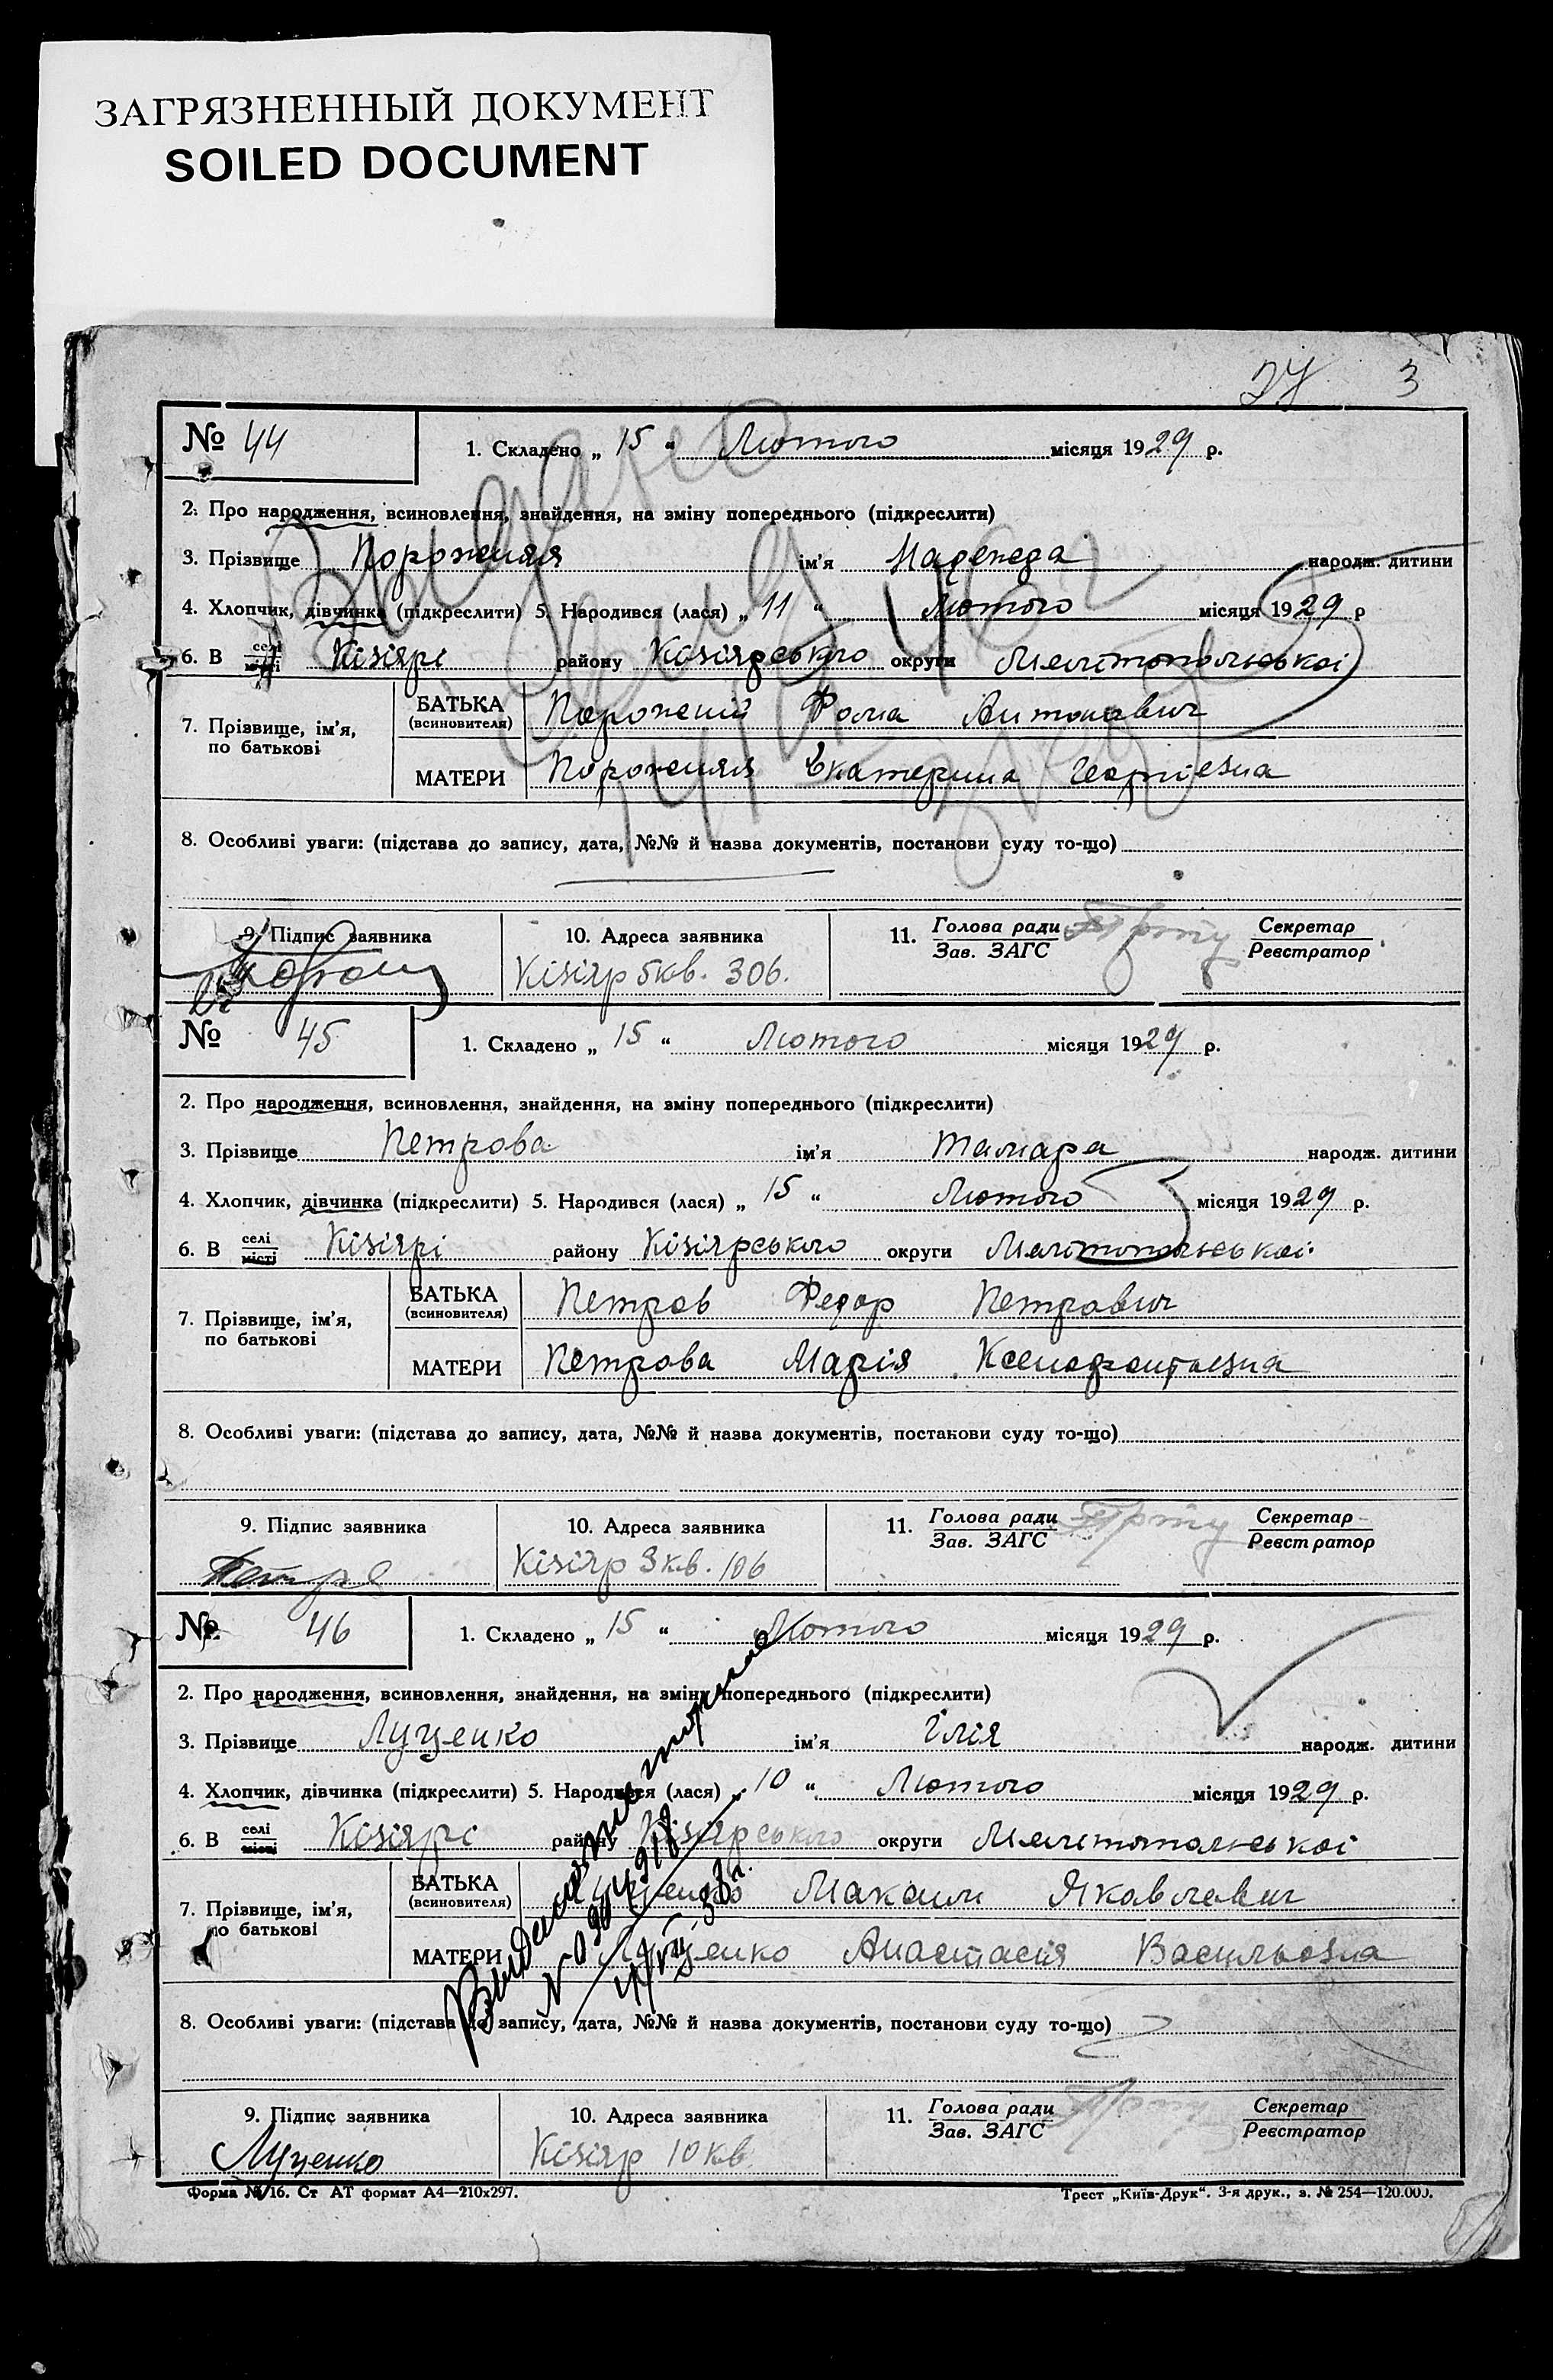 ЗАГРЯЗНЕННЫЙ ДОКУМЕНТ
SOILED DOCUMENT
3
№ 44
1. Складено „ 15 “ Лютого місяця 1929 р.
2. Про народження, всиновлення, знайдення, на зміну попереднього (підкреслити)
3. Прізвище Порожняя ім'я Надежда народж. дитини
4. Хлопчик, дівчинка (підкреслити) 5. Народився (лася) „ 11 “ Лютого місяця 1929 р
6. В селі місті Кізіярі району Кізіярського округи Мелітопольської
7. Прізвище, ім'я, по батькові
БАТЬКА (всиновителя) Порожній Фома Антонович
МАТЕРИ Порожняя Екатерина Георгіевна
8. Особливі уваги: (підстава до запису, дата, №№ й назва документів, постанови суду то-що)
9. Підпис заявника
10. Адреса заявника
Кізіяр 5 кв. 306.
11. Голова ради Зав. ЗАГС
Секретар Реєстратор
№ 45
1. Складено „ 15 “ Лютого місяця 1929 р.
2. Про народження, всиновлення, знайдення, на зміну попереднього (підкреслити)
3. Прізвище Петрова ім'я Тамара народж. дитини
4. Хлопчик, дівчинка (підкреслити) 5. Народився (лася) „ 15 “ Лютого місяця 1929 р.
6. В селі місті Кізіярі району Кізіярського округи Мелітопольської
7. Прізвище, ім'я, по батькові
БАТЬКА (всиновителя) Петров Федор Петрович
МАТЕРИ Петрова Марія Ксенофонтьевна
8. Особливі уваги: (підстава до запису, дата, №№ й назва документів, постанови суду то-що)
9. Підпис заявника
10. Адреса заявника
Кізіяр 3 кв. 106
11. Голова ради Зав. ЗАГС
Секретар Реєстратор
№ 46
1. Складено „ 15 “ Лютого місяця 1929 р.
2. Про народження, всиновлення, знайдення, на зміну попереднього (підкреслити)
3. Прізвище Луценко ім'я Ілія народж. дитини
4. Хлопчик, дівчинка (підкреслити) 5. Народився (лася) „ 10 “ Лютого місяця 1929 р.
6. В селі місті Кізіярі району Кізіярського округи Мелітопольської
7. Прізвище, ім'я, по батькові
БАТЬКА (всиновителя) Луценко Максим Яковлевич
МАТЕРИ Луценко Анастасія Васильевна
8. Особливі уваги: (підстава до запису, дата, №№ й назва документів, постанови суду то-що)
9. Підпис заявника
Луценко
10. Адреса заявника
Кізіяр 10 кв.
11. Голова ради Зав. ЗАГС
Секретар Реєстратор
Форма № 16. Ст АТ формат А4—210х297.
Трест „Київ-Друк“. 3-я друк., з. № 254—120.000.